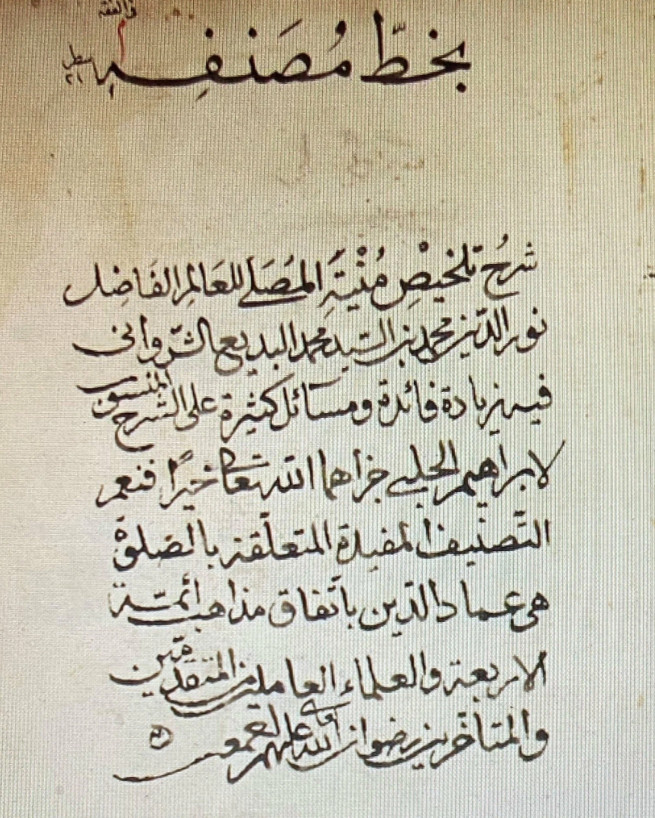 في الفقه
بخطّ مُصَنفِه
شرحُ تلخيصِ مُنْيَةِ المُصَلي للعَالِمِ الفَاضِل
نور الدّين محمد بن السّيد محمد البديع الشّرواني
فيه زيادة فائدة ومسآئل كثيرة على الشرح المنسوب
لابراهيم الحلبي جزاهما الله تعالى خيرًا فنعم
التّصنيف المفيدة المتعلّقة بالصّلوة
هي عماد الدّين باتّفاق مذاهب ائمّة
الاربعة والعلماء العاملين من المتقدّمين
والمتأخّرين رضوان الله عليهم